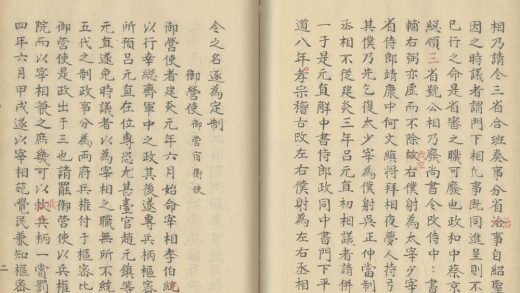 相乃請令三省合班奏事分省治事自紹聖
因之時議者謂門下相凡事既同進呈則不
已行之命是省審之職可廢也政和中蔡京
總領三省號公相乃廢尚書令改侍中:書
輔右弼亦虛而不除故右僕射為太宰少宰
省侍郎靖康中何文縝將拜相夜夢人持弓
其僕乃先乞復太少宰為僕射吳正仲當制
丞相不從建炎三年呂元直初相議者請併
一于是元直解中書侍郎政同中書門下平
道八年孝宗稽古改左右僕射為左右丞相
令之名遂為定制
御營使御營宿衛使
御營使者建炎元年六月始命宰相李伯
以行幸總齊軍中之政其後遂專兵柄樞密
所預呂元直在位專恣尤甚臺官趙元鎮等
元直遂免時議者以為宰相之職無所不統
五代之制政事分為兩府兵權付于樞密比
御營使是政出于三也請罷御營使以兵權
院而以宰相兼之庶幾可以收兵柄一當罰
四年六月甲戌遂以宰相范覺民兼知樞密
二